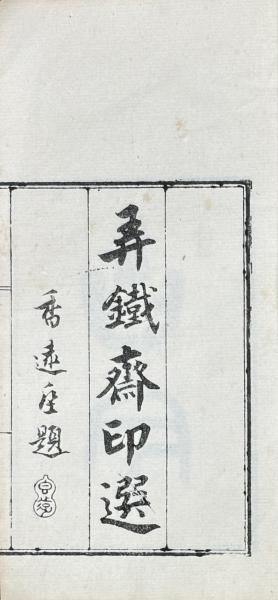 弄鐵齋印選
香遠𡉈題